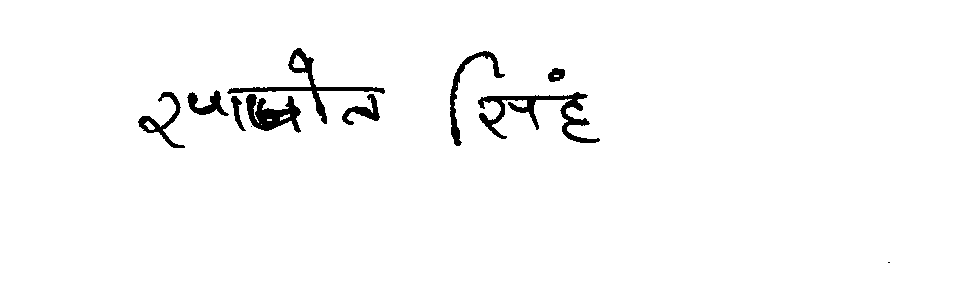 रणजीत सिंह